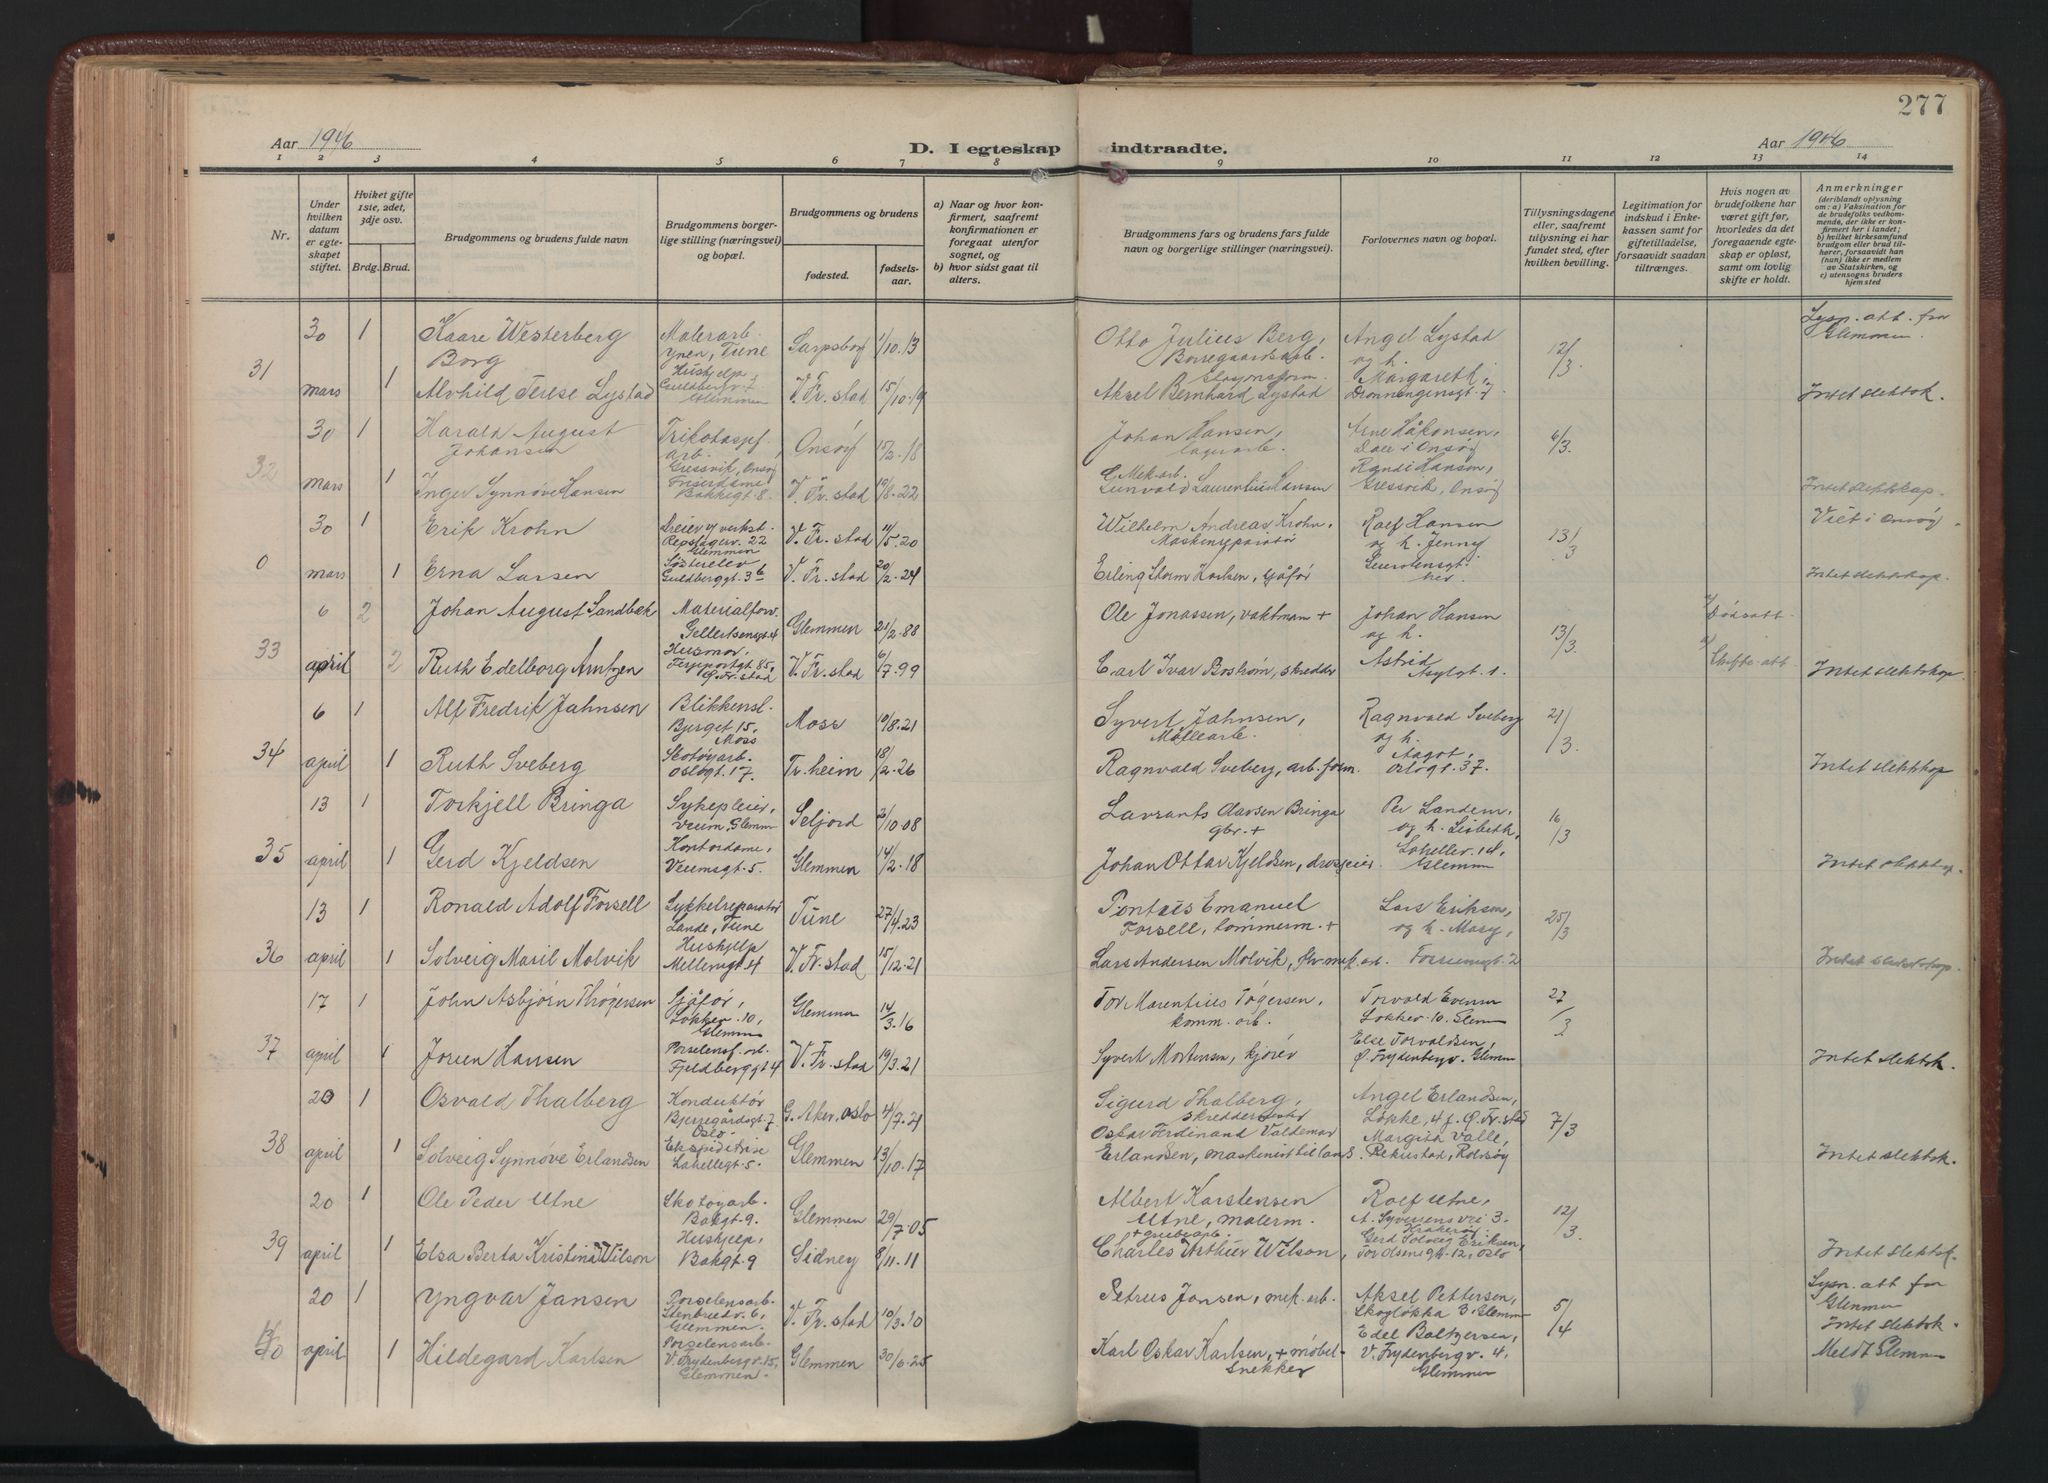 277
Aar 1946
D. I egteskap indtraadte.
Aar 1946
1 2 3 4 5 6 7 8 9 10 11 12 13 14
Nr.
Under hvilken datum er egteskapet stiftet.
Hvilket gifte 1ste, 2det, 3dje osv.
Brdg. Brud.
Brudgommens og brudens fulde navn
Brudgommens borgerlige stilling (næringsvei) og bopæl.
Brudgommens og brudens
fødested.
fødselsaar.
a) Naar og hvor konfirmert, saafremt konfirmationen er foregaat utenfor sognet, og
b) hvor sidst gaat til alters.
Brudgommens fars og brudens fars fulde navn og borgerlige stillinger (næringsvei).
Forlovernes navn og bopæl.
Tillysningsdagene eller, saafremt tillysning ei har fundet sted, efter hvilken bevilling.
Legitimation for indskud i Enkekassen samt for giftetilladelse, forsaavidt saadan tiltrænges.
Hvis nogen av brudefolkene har været gift før, hvorledes da det foregaaende egteskap er opløst, samt om lovlig skifte er holdt.
Anmerkninger (deriblandt oplysning om: a) Vaksination for de brudefolks vedkommende, der ikke er konfirmert her i landet; b) hvilket kirkesamfund brudgom eller brud tilhører, forsaavidt han (hun) ikke er medlem av Statskirken, og c) utensogns bruders hjemsted
31
30 mars
1 Kaare Westerberg Borg
Malerarb. Ynen, Tune
Sarpsborg 1/10.13
Otto Julius Berg, Borregaardsarb.
Angel Lystad og h. Margareth, Dronningensgt. 7
12/3
Lysn. att. fra Glemmen
1 Alvhild Terese Lystad
Hushjelp, Guldbergv. 7 Glemmen
V. Fr. stad 15/10.19
stasjonsform. Aksel Bernhard Lystad
Intet slektsk.
32
30 mars
1 Harald August Johansen
Trikotasjef. arb., Gressvik, Onsøy
Onsøy 15/2.18
Johan Hansen, lagerarb.
Arne Håkonsen, Dale i Onsøy
6/3
1 Inger Synnøve Hansen
Bakkegt. 8.
V. Fr. stad 19/8.22
Mek. arb. Gunvald Laurentius Hansen
Randi Hansen, Gressvik, Onsøy
Intet slektskap.
0
30 mars
1 Erik Krohn
Repslagerv. 22 Glemmen
V. Fr. stad 11/5.20
Wilhelm Andreas Krohn, Maskinreparatør
Rolf Hansen og h. Jenny
13/3
Viet i Onsøy
1 Erna Larsen
Søsterelev Guldberggt. 3b
V. Fr. stad 20/2.24
Erling Storm Larsen, sjåfør
her
Intet slektskap
33
6 april
2 Johan August Sandbæk
Materialforv. Gellertsensgt. 4
Glemmen 21/2.88
Ole Jonassen, vaktmann +
Johan Hansen og h. Astrid
13/3.
Dødsatt.
2 Ruth Edelborg Arntzen
Husmor, Ferjeportgt. 85, Ø. Fr. stad
V. Fr. stad 6/7.99
Carl Ivar Boström, skredder
Asylgt. 1.
Skifte. att.
Intet slektskap
34
6 april
1 Alf Fredrik Jahnsen
Blikkensl. Bjerget 15, Moss
Moss 19/8.21
Syvert Jahnsen, Møllearb.
Ragnvald Sveberg og h. Aagot,
21/3.
1 Ruth Sveberg
Skotøyarb. Oslogt. 17.
Tr. heim 18/2.26
Ragnvald Sveberg, arb. form.
Oslogt. 37.
Intet slektskap
35
13 april
1 Torkjell Bringa
Sykepleier, Veum, Glemm
Seljord 2/10.08
Lavrants Aavsen Bringa gbr. +
Per Landem, og h. Lisbeth,
16/3
1 Gerd Kjeldsen
Kontordame, Veumsgt. 5.
Glemmen 14/2.18
Johan Ottar Kjeldsen, drosjeeier
Lahellev. 14, Glemmen
Intet slektskap.
36
13 april
1 Ronald Adolf Forsell
Sykkelreparatør Lande, Tune
Tune 27/4.23
Pontus Emanuel Forsell, tømmerm. +
Lars Eriksen, og h. Mary,
25/3
1 Solveig Maril Molvik
Hushjelp Mellemgt. 4
V. Fr. stad 15/12.21
Lars Andersen Molvik, mek. arb.
Intet slektskap.
37
17 april
1 John Asbjörn Thøgersen
Sjåfør, Løkkev. 10, Glemmen
Glemmen 14/3.16
Tor Marentius Tøgersen, komm. arb.
Torvald Evensen Løkkev. 10. Glemm
27/3
1 Joreen Hansen
Porselensf. arb. Fjeldberggt. 4
V. Fr. stad 19/3.21
Syvert Mortensen, kjører
Else Torvaldsen, Ø. Frydenbergv. Glemm
Intet slektsk.
38
20 april
1 Osvald Thalberg
Konduktör Bjerregårdsgt. 7 Oslo.
G. Aker, Oslo 4/7.21
Sigurd Thalberg, Skreddermester
Angel Erlandsen, Løkke, 4 f. Ø. Fr. stad
7/3
1 Solveig Synnøve Erlandsen
Ekspeditrise Lahellegt. 5.
Glemmen 13/10.17
Oskar Ferdinand Valdemar Erlandsen, maskinist til lands.
Margita Valle, Rekustad, Rolvsøy
Intet slektsk.
39
20 april
1 Ole Peder Utne
Skotøyarb. Bakgt. 9.
Glemmen 29/7.05
Albert Karstensen Utne, malerm.
Rolf Utne, A. Syversensvei 3. Kråkerøy
12/3
1 Elsa Berta Kristina Wilson
Hushjelp, Bakgt. 9
Sidney 8/11.11
+ grubearb. Charles Arthur Wilson,
Gerd Solveig Eriksen, Tor Olsensgt. 12, Oslo
Intet slektsk.
40
20 april
1 Yngvar Jansen
Porselensarb. Stenbruddv. 6, Glemmen.
V. Fr. stad 19/3.10
Petrus Jonsen, mek. arb.
Aksel Pettersen, Skogløkka 3, Glemm
5/4
Lysn. att for Glemmen
Intet slektsk.
1 Hildegard Karlsen
Porselensarb. V. Frydenbergv. 15, Glemmen.
Glemmen 30/6.25
Karl Oskar Karlsen, + møbelsnekker
Edel Boltzersen, V. Frydenbergv. 4, Glemmen
Meldt Glemmen